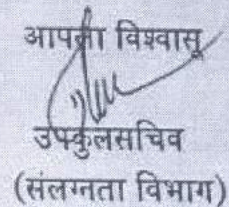 आपला विश्वासू
उपकुलसचिव
(संलग्नता विभाग)